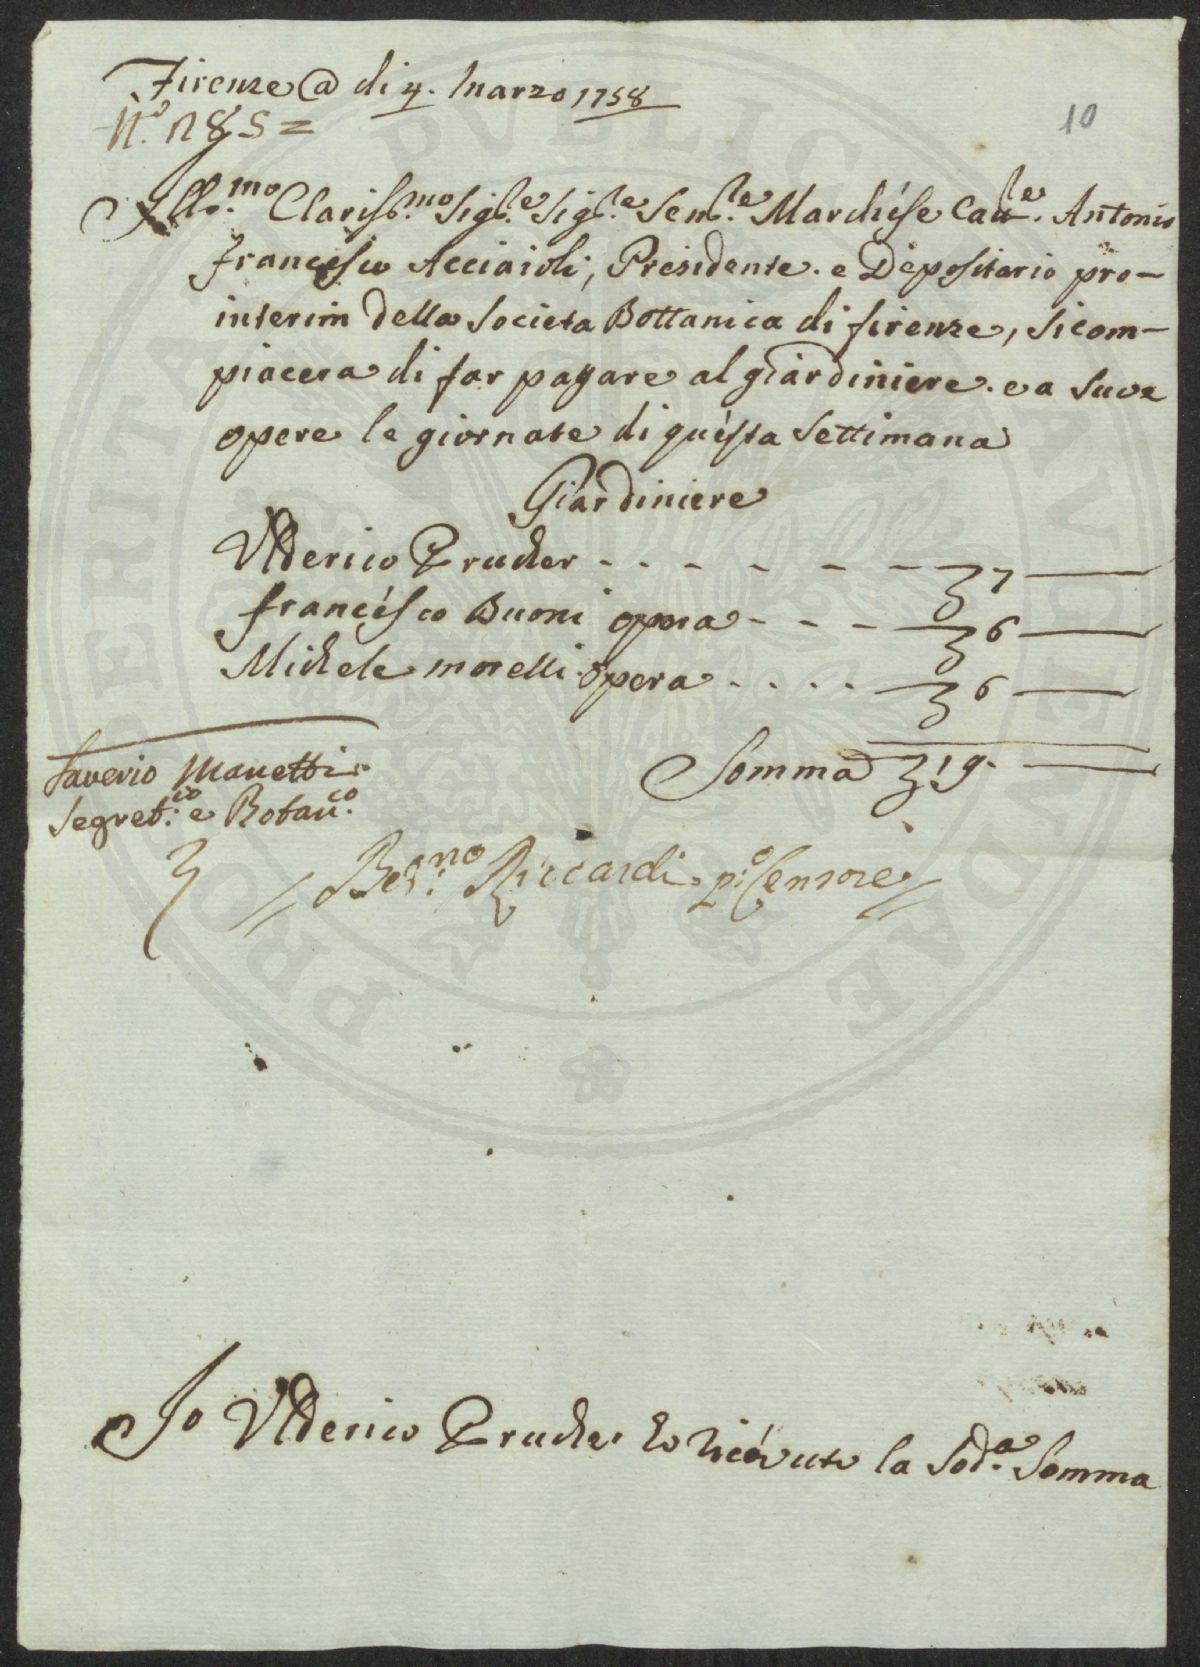 Firenze @ di 4. Marzo 1758
N.o 1285 =
10
Ill.mo Clariss.mo Sig.re Sig.re Sen.re Marchese Cau.re Antonio
Francesco Acciaioli, Presidente. e Depositario pro-
interim della Societa Bottanica di firenze, si com-
piacera di far pagare al giardiniere. e a sue
opere le giornate di questa settimana
Giardiniere
Ulderico Prucher - - - - - - 7
francesco Buoni opera - - - 6
Michele morelli opera . . . . 6
Somma 19.
Saverio Manetti
Segret.io e Botan.co
Ber.no Riccardi p.o Censore
Io Ulderico Prucher ho riceuuto la sod.a Somma
PRO PERITATI PVBLICAE AVGENDAE